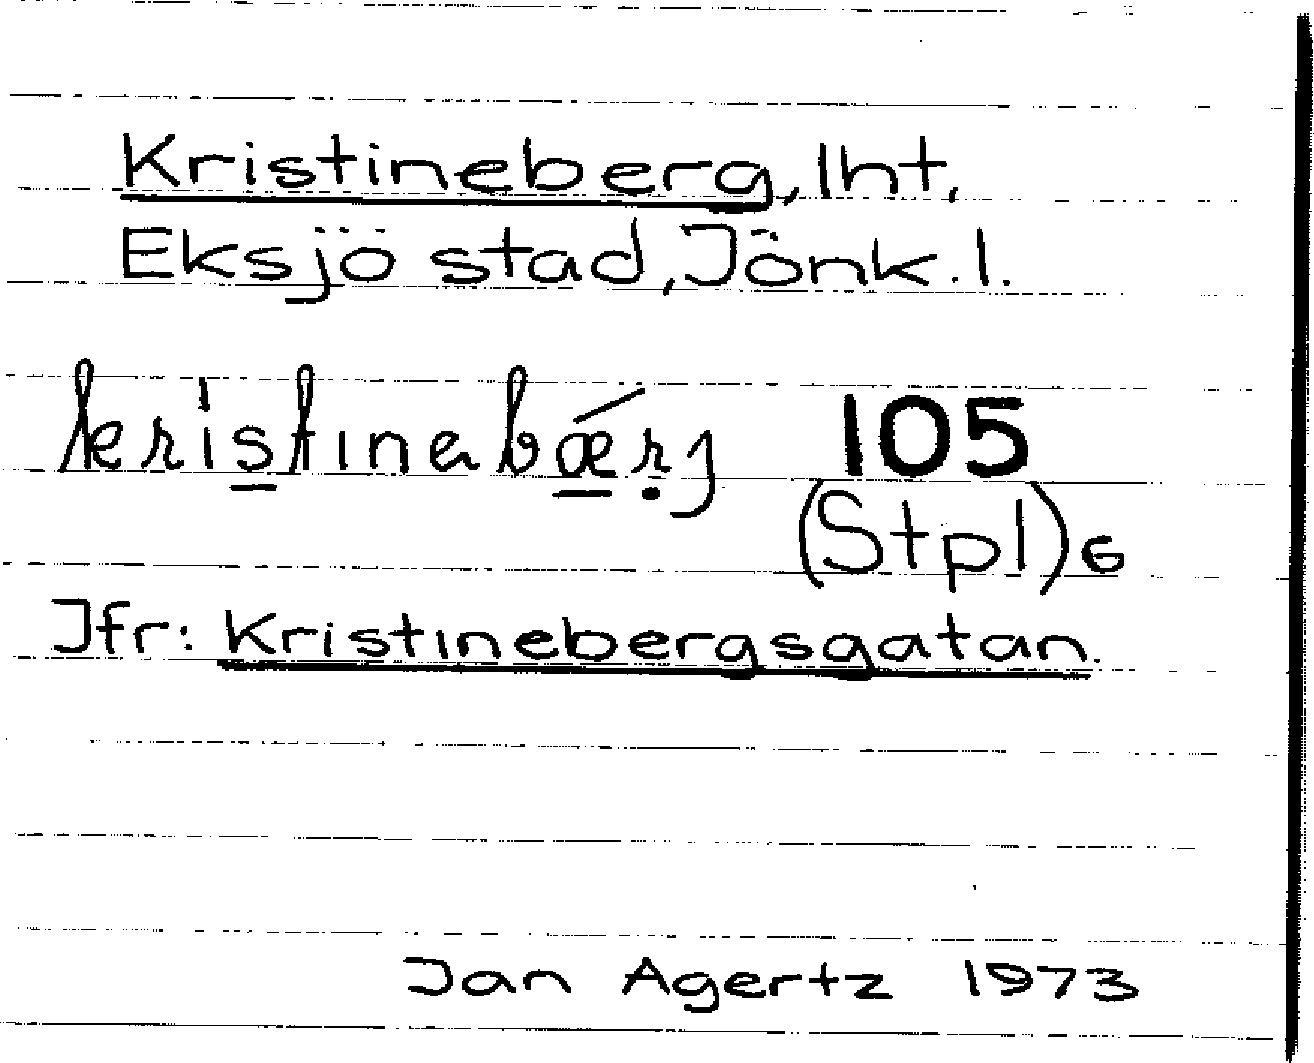 Kristineberg, lht,
Eksjö stad, Jönk. l.
kristinabǽrj 105
(Stpl) 6
Jfr: Kristinebergsgatan.
Jan Agertz 1973